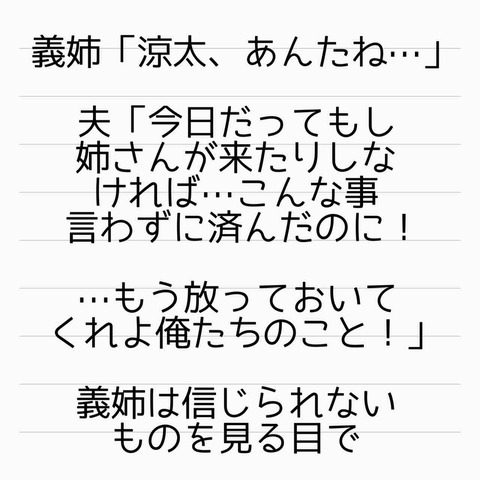 義姉「涼太、あんたね…」
夫「今日だってもし
姉さんが来たりしな
ければ…こんな事
言わずに済んだのに！
…もう放っておいて
くれよ俺たちのこと！」
義姉は信じられない
ものを見る目で